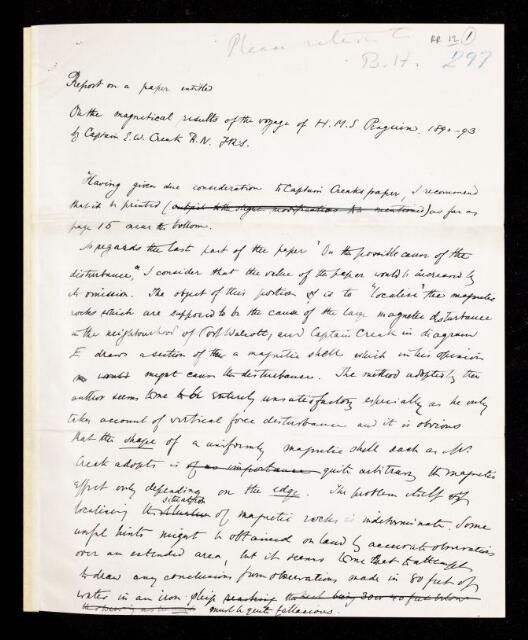 Please return to
B.H.
RR 12 1
297
Report on a paper entitled
On the magnetical results of the voyage of H.M.S Penguin. 1890-93
by Captain E.W. Creak R.N. FRS.
Having given due consideration to Captain Creak's paper, I recommend
that it be printed (subject to the slight modifications mentioned) as far as
page 15 near the bottom.
As regards the last part of the paper "On the possible causes of the
disturbance," I consider that the value of the paper would be increased by
its omission. The object of this portion is to "localise" the magnetic
rocks which are supposed to be the cause of the large magnetic disturbance
in the neighbourhood of Port Walcott, and Captain Creak in diagram
E draws a section of a magnetic shell which in his opinion
would might cause the disturbance. The method adopted by the
author seems to me to be entirely unsatisfactory especially as he only
takes account of vertical force disturbance and it is obvious
that the shape of a uniformly magnetic shell such as Mr.
Creak adopts is of no importance quite arbitrary the magnetic
effect only depending on the edge. The problem itself of
situation
localising the of magnetic rocks is indeterminate. Some
useful hints might be obtained on land by accurate observations
over an extended area, but it seems to me that to attempt
to draw any conclusions from observations made in 80 feet of
water in an iron ship
must be quite fallacious.